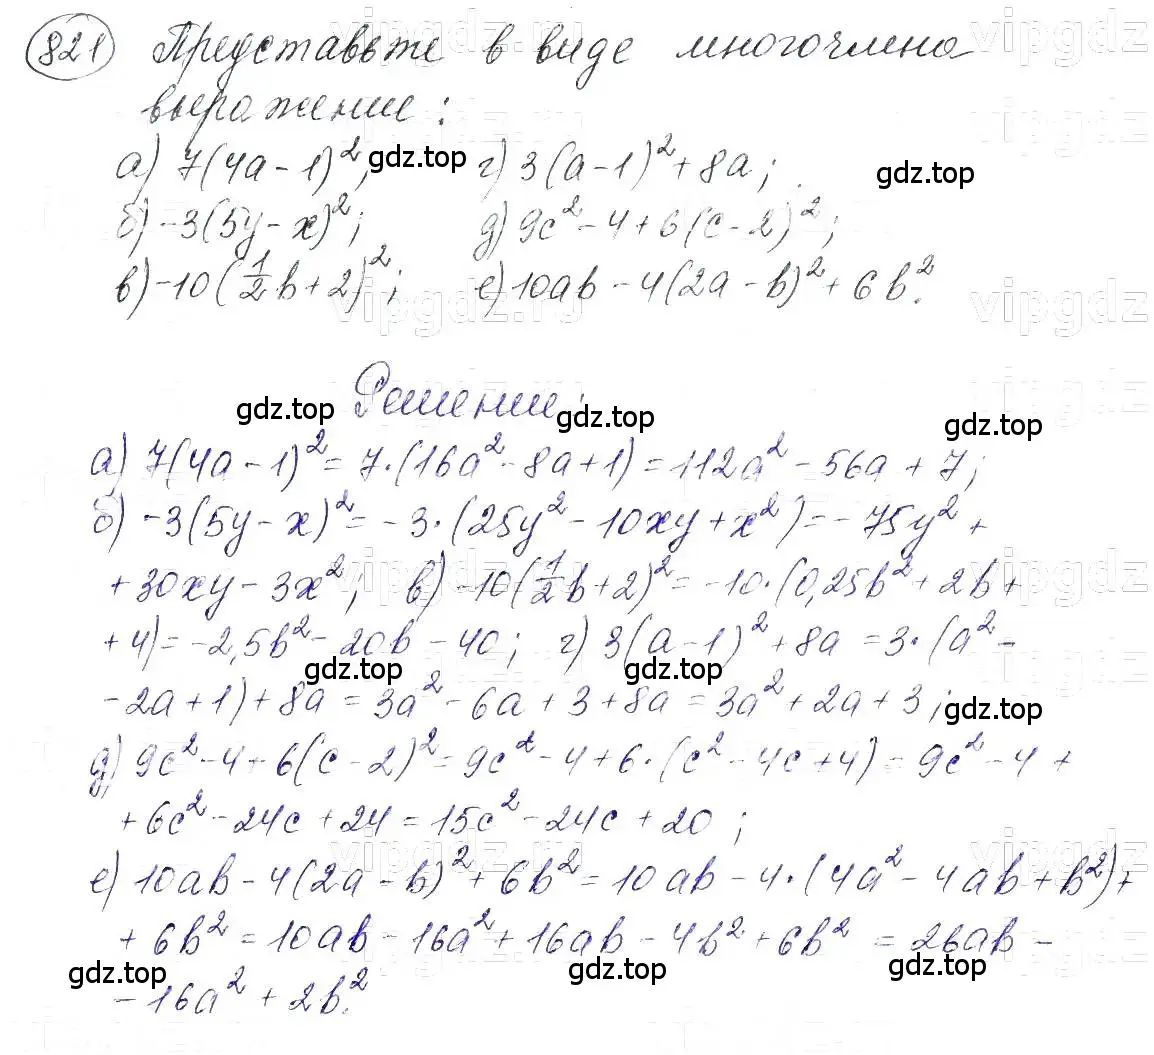 821 Представьте в виде многочлена
выражение:
а) 7(4a - 1)²; г) 3(a - 1)² + 8a;
б) -3(5y - x)²; д) 9c² - 4 + 6(c - 2)²;
в) -10(1/2 b + 2)²; е) 10ab - 4(2a - b)² + 6b².
Решение:
а) 7(4a - 1)² = 7·(16a² - 8a + 1) = 112a² - 56a + 7;
б) -3(5y - x)² = -3·(25y² - 10xy + x²) = -75y² +
+ 30xy - 3x²; в) -10(1/2 b + 2)² = -10·(0,25b² + 2b +
+ 4) = -2,5b² - 20b - 40; г) 3(a - 1)² + 8a = 3·(a² -
- 2a + 1) + 8a = 3a² - 6a + 3 + 8a = 3a² + 2a + 3;
д) 9c² - 4 + 6(c - 2)² = 9c² - 4 + 6·(c² - 4c + 4) = 9c² - 4 +
+ 6c² - 24c + 24 = 15c² - 24c + 20;
е) 10ab - 4(2a - b)² + 6b² = 10ab - 4·(4a² - 4ab + b²) +
+ 6b² = 10ab - 16a² + 16ab - 4b² + 6b² = 26ab -
- 16a² + 2b².
gdz.top
gdz.top
gdz.top
gdz.top
gdz.top
gdz.top
gdz.top
gdz.top
gdz.top
gdz.top
gdz.top
vipgdz.ru
vipgdz